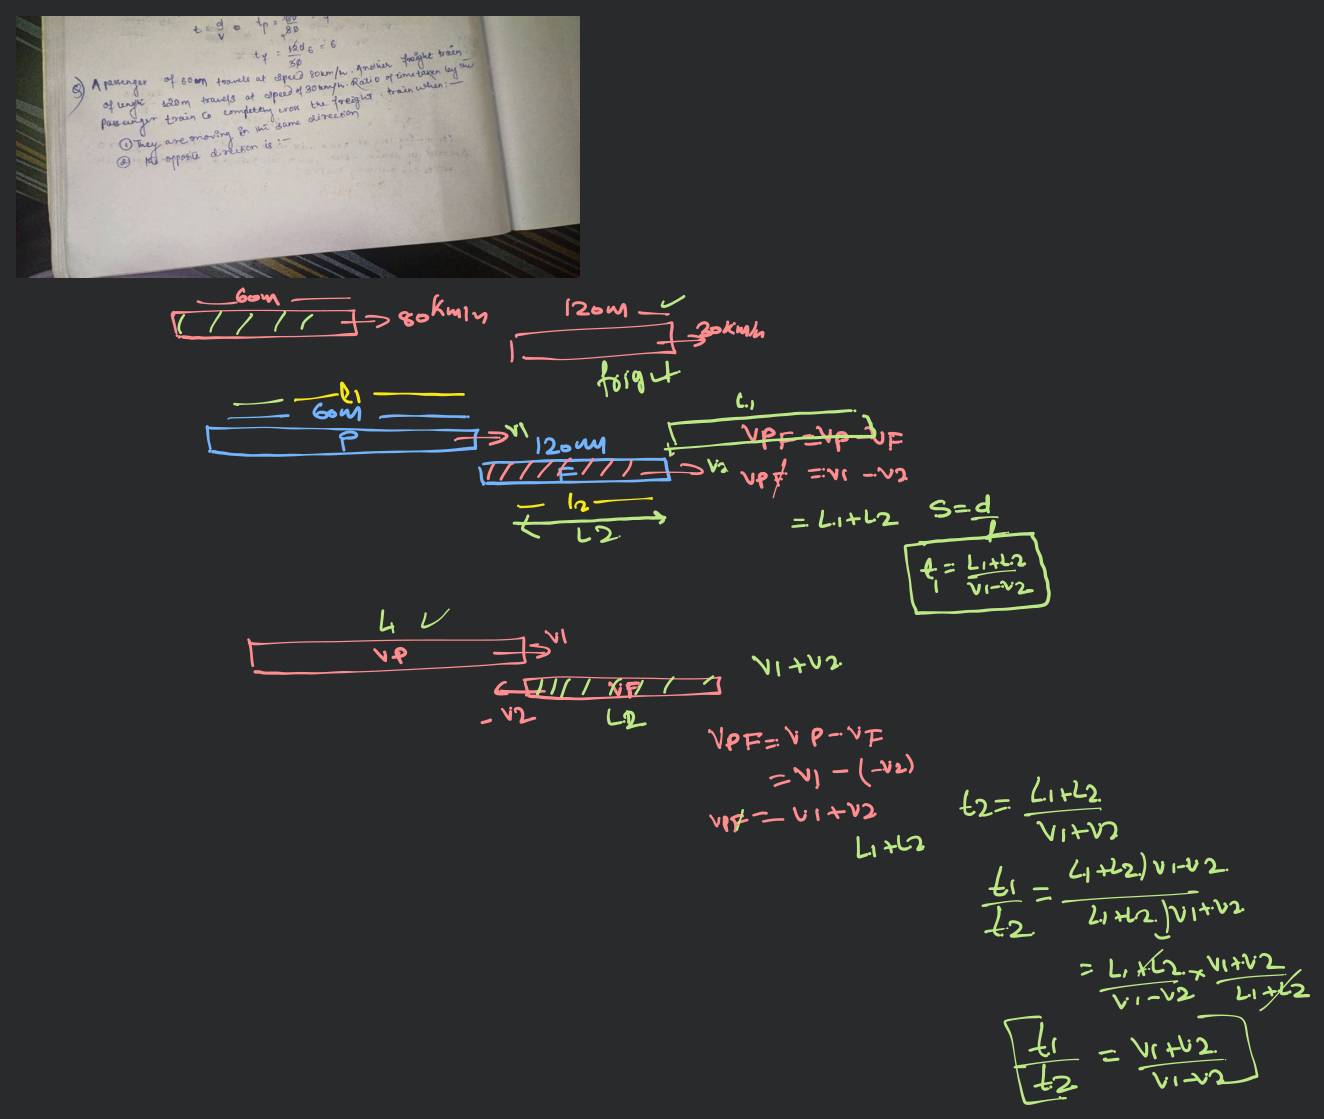 t = d/v
tp =
80
30
= 6
Q) A passenger of 60m travels at speed 80km/h. Another freight train
of length 120m travels at speed of 30km/h. Ratio of time taken by the
Passenger train to completely cross the freight train when:-
① They are moving in the same direction
② the opposite direction is :-
60m
80 Km/h
120m
30Km/h
freight
l1
60m
P
V1
120m
F
V2
l2
L2
L1
VPF = VP - VF
VPF = V1 - V2
= L1+L2
S = d/t
t1 = L1+L2 / V1-V2
L1
VP
V1
VF
- V2
L2
V1+V2
VPF = VP - VF
= V1 - (-V2)
VPF = V1+V2
L1+L2
t2 = L1+L2 / V1+V2
t1/t2 = L1+L2) V1-V2 / L1+L2) V1+V2
= L1+L2 / V1-V2 × V1+V2 / L1+L2
t1/t2 = V1+V2 / V1-V2